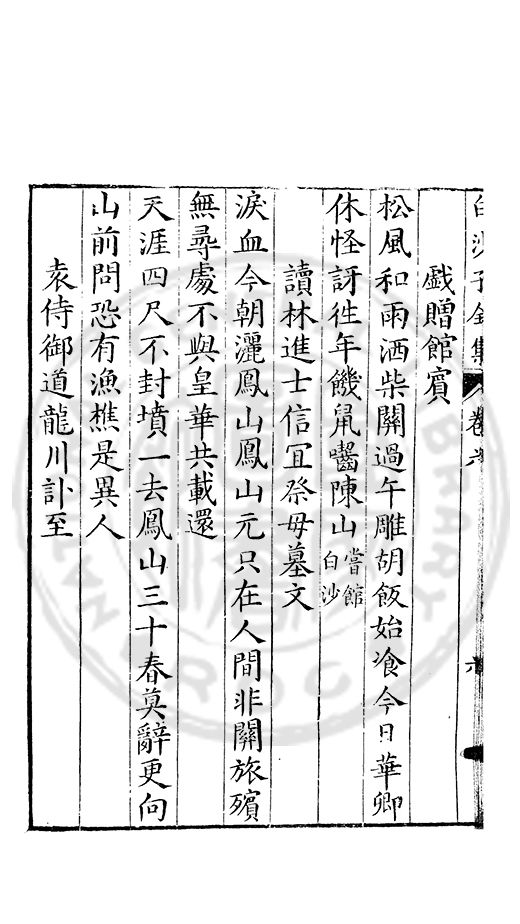 白沙子全集 卷六 六
戲贈館賓
松風和雨洒柴關過午雕胡飯始飡今日華卿
休怪訝徃年饑鼠嚙陳山嘗館白沙
讀林進士信宜祭母墓文
淚血今朝灑鳳山鳳山元只在人間非關旅殯
無尋處不與皇華共載還
天涯四尺不封墳一去鳳山三十春莫辭更向
山前問恐有漁樵是異人
袁侍御道龍川訃至